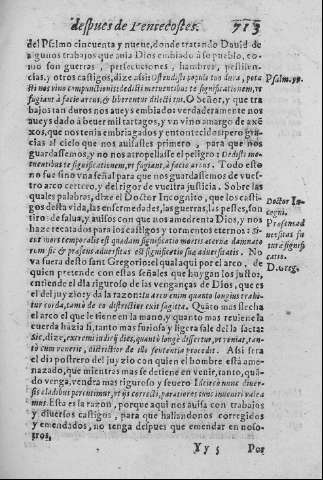 despues de Pentecostes. 713
del Psalmo cincuenta y nueue, donde tratando Dauid de
algunos trabajos que auia Dios embiado à su pueblo, co-
mo son guerras, persecuciones, hambres, pestilen-
cias, y otros castigos, dize assi: Ostendisti populo tuo dura, pota
sti nos vino compunctionis: dedisti metuentibus te significationem, vt
fugiant à facie arcus, & liberentur dilecti tui. O Señor, y que tra
bajos tan duros nos aueys embiado: verdaderamente nos
aueys dado à beuer mil tartagos, y vn vino amargo de axē
xos, que nos tenia embriagados y entontecidos: pero gra-
cias al cielo que nos auisastes primero, para que nos
guardassemos, y no nos atropellasse el peligro: Dedisti me-
tuentibus te significationem, vt fugiant, à facie arcus. Todo esto
no fue sino vna señal para que nos guardassemos de vues-
tro arco certero, y del rigor de vuestra justicia. Sobre las
quales palabras, dize el Doctor Incognito, que los casti-
gos desta vida, las enfermedades, las guerras, las pestes, son
tiro de salua, y auisos con que nos amedrenta Dios, y nos
haze recatados para los castigos y tormentos eternos: Si-
cut mors temporalis est quædam significatio mortis æternæ damnato
rum sic & præsens aduersitas est significatio suæ aduersitatis. No
va fuera desto sant Gregorio: el qual aqui por el arco, de
quien pretende con estas señales que huygan los justos,
entiende el dia riguroso de las venganças de Dios, que es
el del juyzio: y da la razon: In arcu enim quanto longius trahi-
tur corda, tanto de eo districtior exit sagitta. Quāto mas flecha
al arco el que le tiene en la mano, y quanto mas reuiene la
cuerda hazia si, tanto mas furiosa y ligera sale del la saeta:
Sic, dize, extremi iudicij dies, quantò longè differtur, vt veniat, tan-
tò cum venerit, districtior de illo sententia procedit. Assi sera
el dia postrero del juyzio con quien el hombre està ame-
nazado, que mientras mas se detiene en venir, tanto, quā-
do venga, vendra mas riguroso y seuero: Idcircò nunc diuer-
sis cladibus percutimur, vt ijs correcti, paratiores tunc inueniri valea
mus. Esta es la razon, porque aqui nos auisa con trabajos
y diuersos castigos, para que hallandonos corregidos
y emendados, no tenga despues que emendar en noso-
tros,
Yy 5 Por
Psalm. 59.
Doctor In-
cogni.
Præsens ad
uersitas su
turæ signifi
catio.
D. Greg.